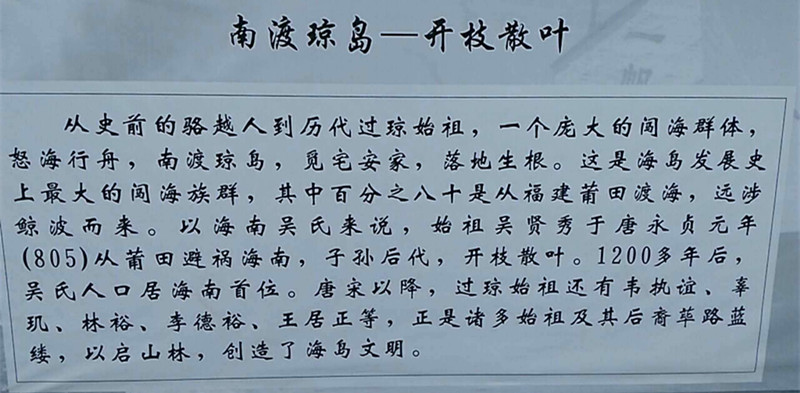 南渡琼岛—开枝散叶
从史前的骆越人到历代过琼始祖，一个庞大的闯海群体，
怒海行舟，南渡琼岛，觅宅安家，落地生根。这是海岛发展史
上最大的闯海族群，其中百分之八十是从福建莆田渡海，远涉
鲸波而来。以海南吴氏来说，始祖吴贤秀于唐永贞元年
(805)从莆田避祸海南，子孙后代，开枝散叶。1200多年后，
吴氏人口居海南首位。唐宋以降，过琼始祖还有韦执谊、辜
玑、林裕、李德裕、王居正等，正是诸多始祖及其后裔荜路蓝
缕，以启山林，创造了海岛文明。